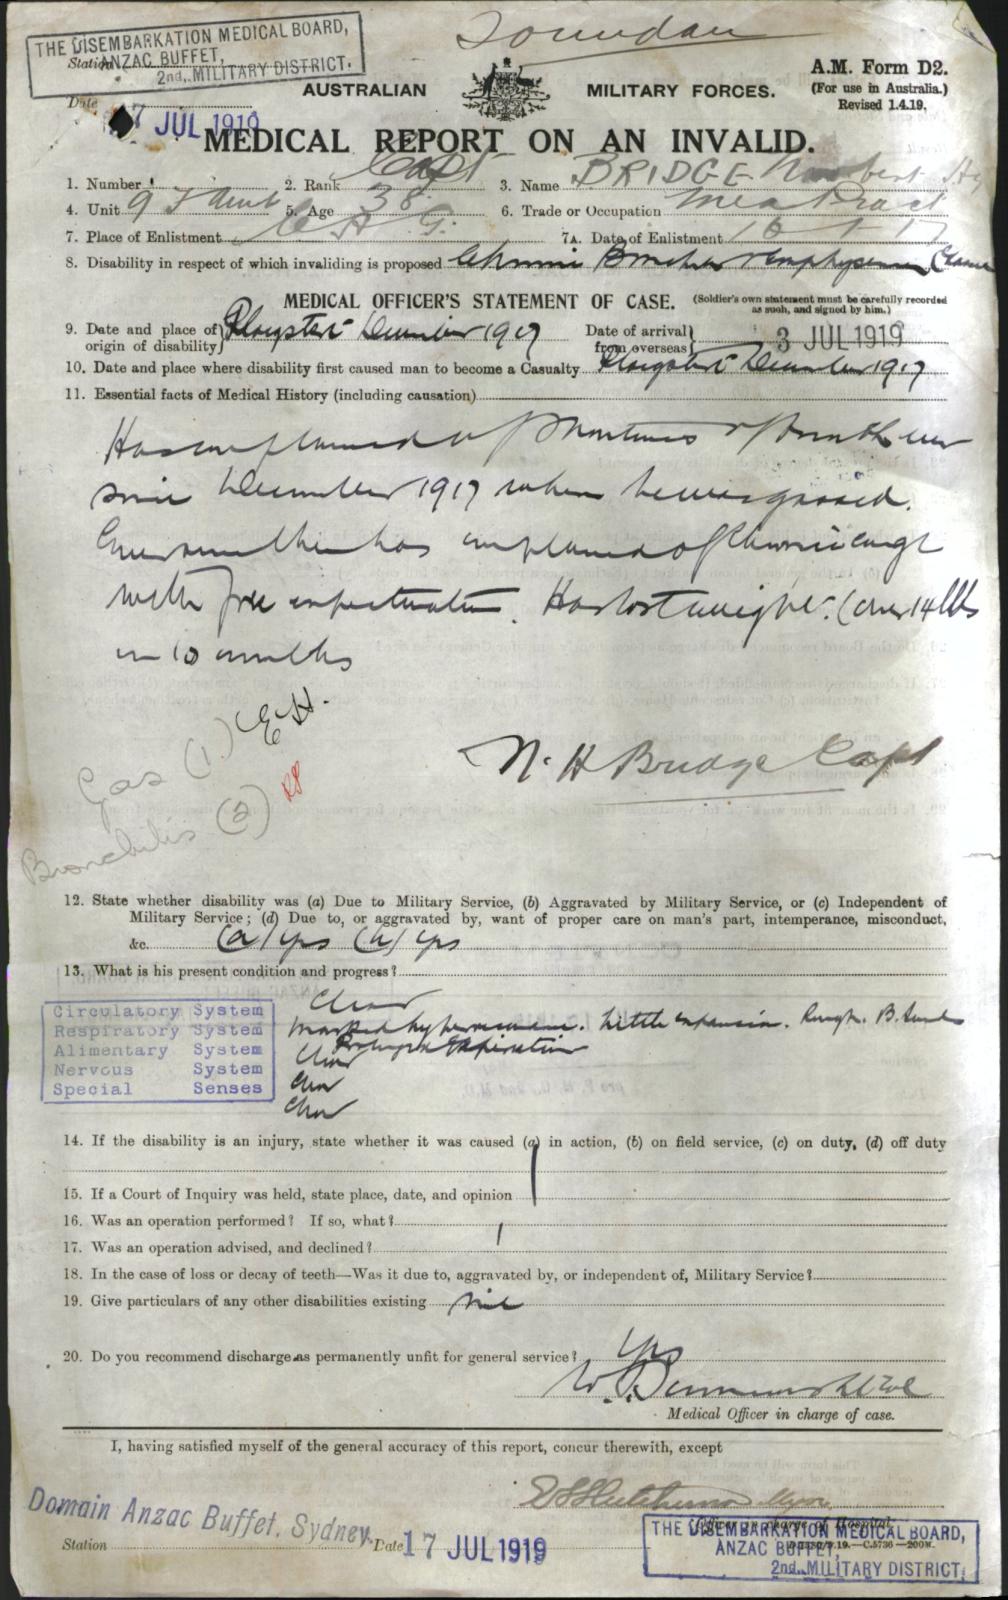 THE DISEMBARKATION MEDICAL BOARD,
ANZAC BUFFET,
2nd. MILITARY DISTRICT.
Station
Date
17 JUL 1919
AUSTRALIAN MILITARY FORCES.
A.M. Form D2.
(For use in Australia.)
Revised 1.4.19.
MEDICAL REPORT ON AN INVALID.
1. Number 2. Rank Capt 3. Name BRIDGE
4. Unit 9 F Amb 5. Age 38 6. Trade or Occupation Med Pract
7. Place of Enlistment 7A. Date of Enlistment 16 1 17
8. Disability in respect of which invaliding is proposed Chronic Bronchitis & Emphysema
MEDICAL OFFICER'S STATEMENT OF CASE. (Soldier's own statement must be carefully recorded
as such, and signed by him.)
9. Date and place of origin of disability Ploegstert December 1917 Date of arrival from overseas 3 JUL 1919
10. Date and place where disability first caused man to become a Casualty Ploegstert December 1917
11. Essential facts of Medical History (including causation)
Has complained of Shortness of Breath ever
since December 1917 when he was gassed.
Ever since then has complained of Chronic cough
with free expectoration. Has lost weight. (over 14 lbs
in 10 months
Gas (1.) EH.
Bronchitis (2)
N. H Bridge Capt
12. State whether disability was (a) Due to Military Service, (b) Aggravated by Military Service, or (c) Independent of
Military Service; (d) Due to, or aggravated by, want of proper care on man's part, intemperance, misconduct,
&c. (a) yes (b) yes
13. What is his present condition and progress?
Circulatory System Clear
Respiratory System Marked hyperresonance. Little expansion. Rough B. Sounds
Prolonged Expiration
Alimentary System Clear
Nervous System Clear
Special Senses Clear
14. If the disability is an injury, state whether it was caused (a) in action, (b) on field service, (c) on duty, (d) off duty
15. If a Court of Inquiry was held, state place, date, and opinion
16. Was an operation performed? If so, what?
17. Was an operation advised, and declined?
18. In the case of loss or decay of teeth—Was it due to, aggravated by, or independent of, Military Service?
19. Give particulars of any other disabilities existing nil
20. Do you recommend discharge as permanently unfit for general service? Yes
Medical Officer in charge of case.
I, having satisfied myself of the general accuracy of this report, concur therewith, except
Officer in charge of Hospital.
Domain Anzac Buffet, Sydney.
Station Date 17 JUL 1919
C.5736—200M.
THE DISEMBARKATION MEDICAL BOARD,
ANZAC BUFFET,
2nd. MILITARY DISTRICT.